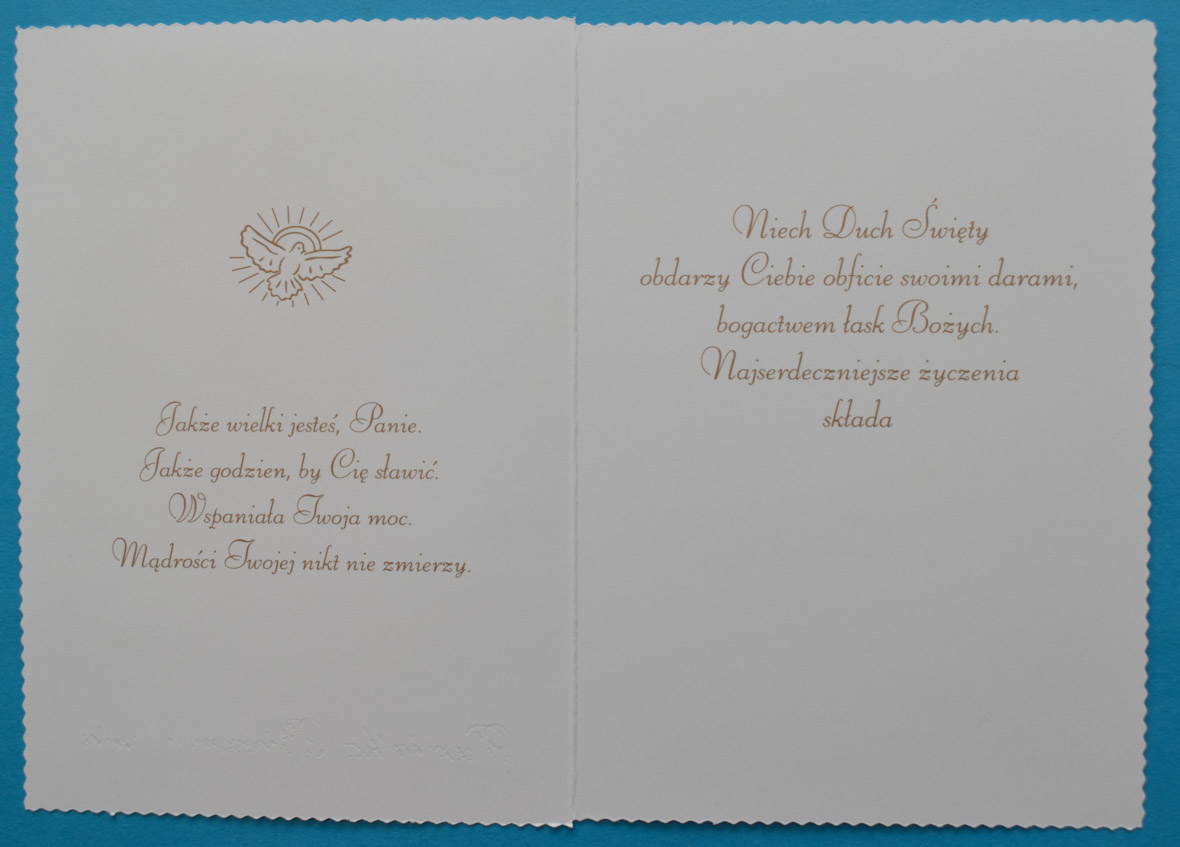 Jakże wielki jesteś, Panie.
Jakże godzien, by Cię sławić.
Wspaniała Twoja moc.
Mądrości Twojej nikt nie zmierzy.
Niech Duch Święty
obdarzy Ciebie obficie swoimi darami,
bogactwem łask Bożych.
Najserdeczniejsze życzenia
składa